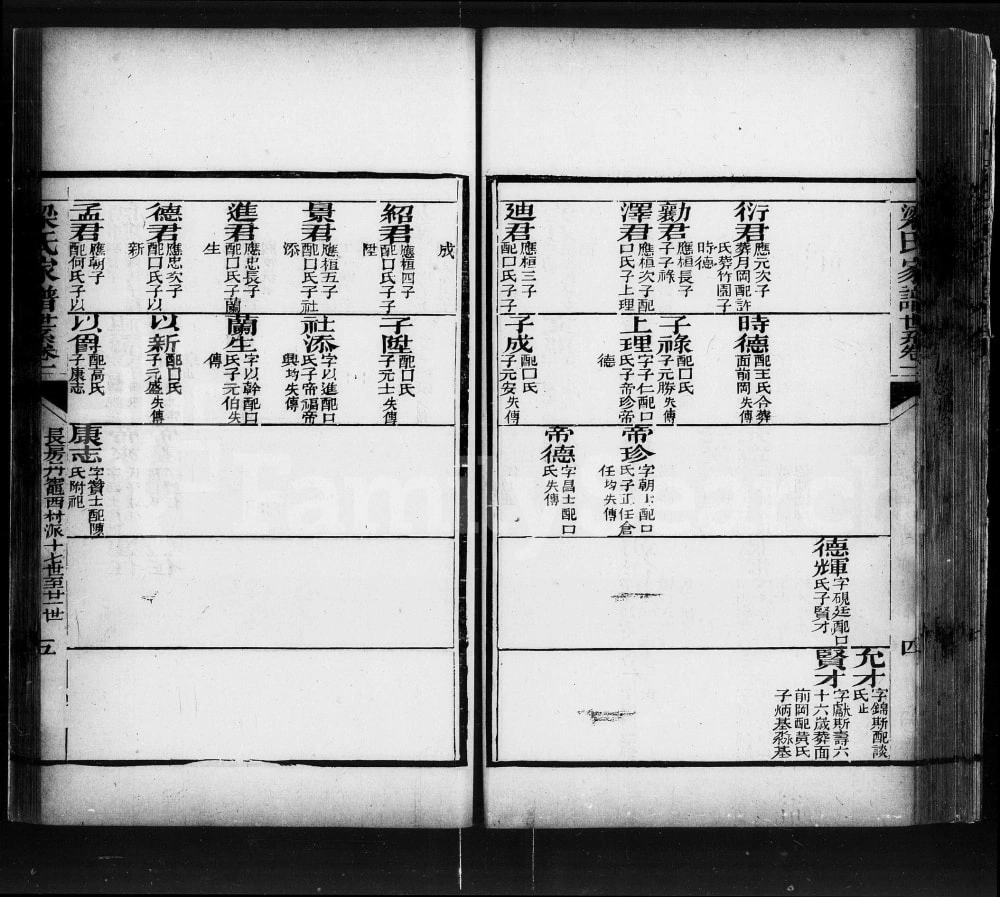 梁氏家譜世系卷二
四
衍君
應元次子
葬月岡配許
氏葬竹園子
時德
勷君
應桓長子
子子祿
澤君
應桓次子配
口氏子上理
廸君
應桓三子
配口氏子子
成
時德
配王氏合葬
面前岡失傳
子祿
配口氏
子元勝失傳
上理
字子仁配口
氏子帝珍帝
德
子成
配口氏
子元安失傳
帝珍
字朝士配口
氏子正任倉
任均失傳
帝德
字昌士配口
氏失傳
德輝
字硯廷配口
氏子賢才
允才
字錦斯配談
氏止
賢才
字獻斯壽六
十六歲葬面
前岡配黄氏
子炳基淼基
紹君
應桓四子
配口氏子子
陞
景君
應桓五子
配口氏子社
添
進君
應忠長子
配口氏子蘭
生
德君
應忠次子
配口氏子以
新
孟君
應朝子
配何氏子以
子陞
配口氏
子元士失傳
社添
字以進配口
氏子帝福帝
興均失傳
蘭生
字以幹配口
氏子元伯失
傳
以新
配口氏
子元盛失傳
以爵
配高氏
子康志
康志
字贊士配陳
氏附祀
梁氏家譜世系卷二
長房竹竈西村派十七世至廿一世
五